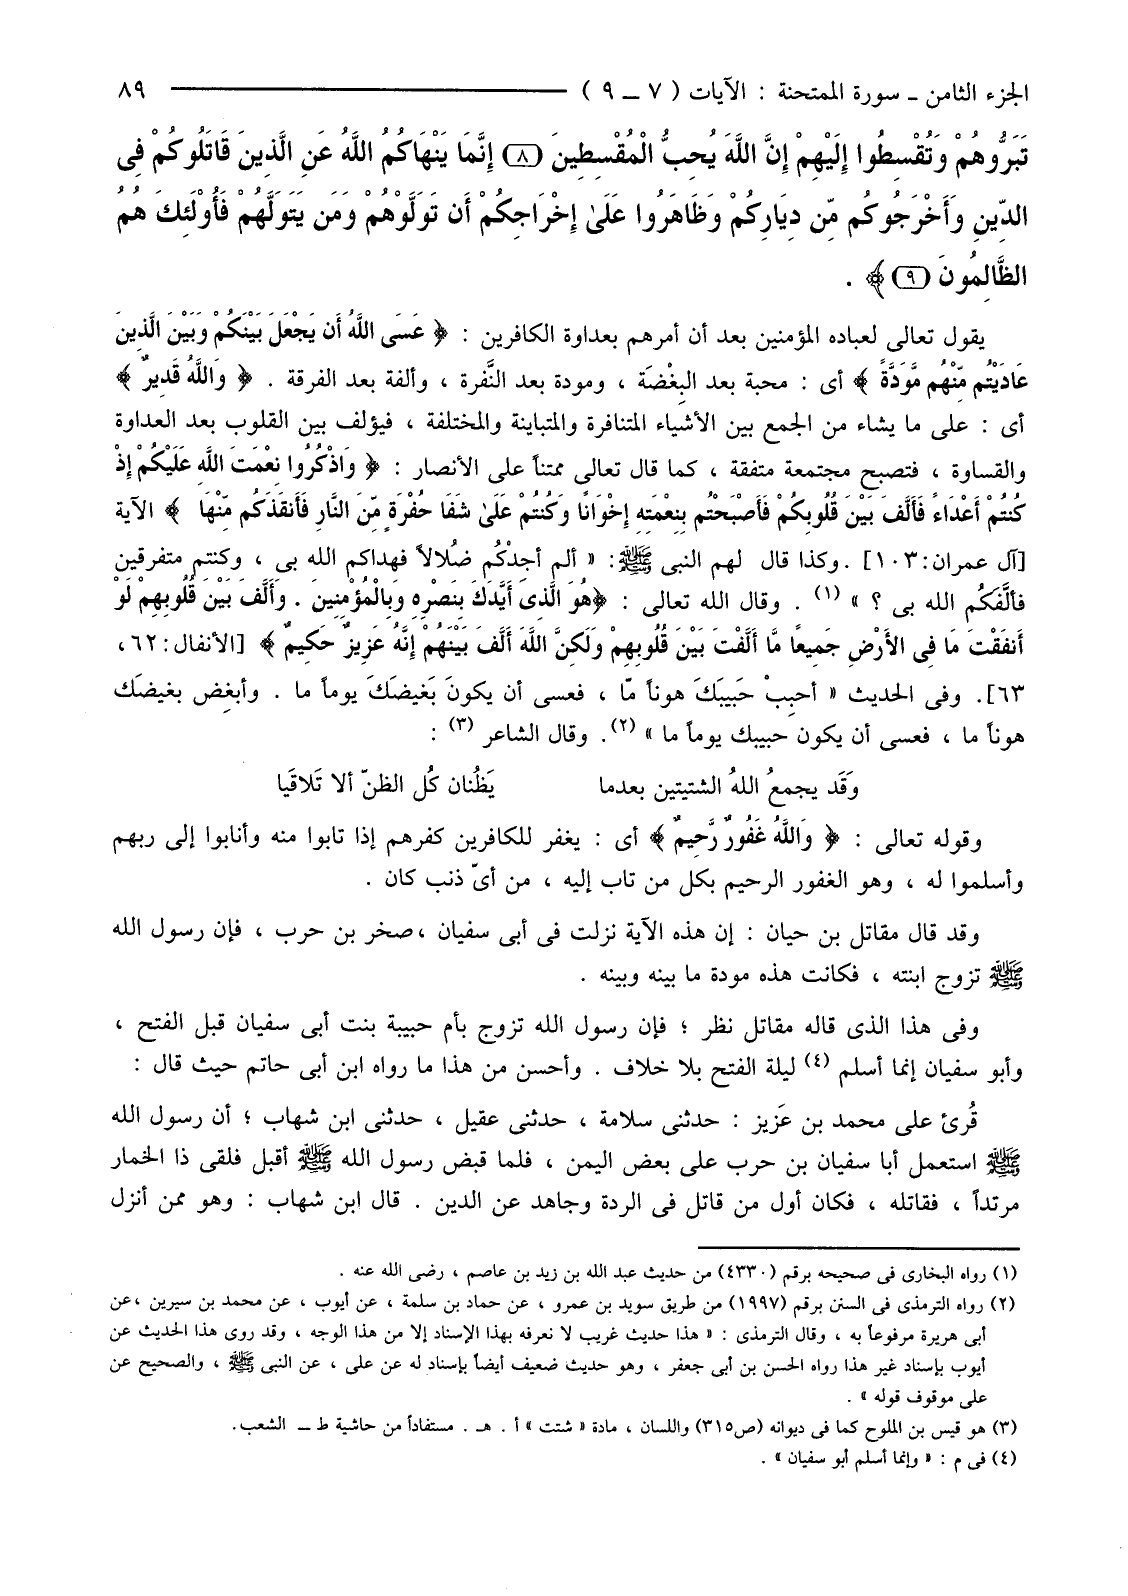 الجزء الثامن ـ سورة الممتحنة : الآيات ( ٧ ــ ٩ ) ٨٩
تَبَرُّوهُمْ وَتُقْسِطُوا إِلَيْهِمْ إِنَّ اللَّهَ يُحِبُّ الْمُقْسِطِينَ (٨) إِنَّمَا يَنْهَاكُمُ اللَّهُ عَنِ الَّذِينَ قَاتَلُوكُمْ فِى
الدِّينِ وَأَخْرَجُوكُم مِّن دِيَارِكُمْ وَظَاهَرُوا عَلَىٰ إِخْرَاجِكُمْ أَن تَوَلَّوْهُمْ وَمَن يَتَوَلَّهُمْ فَأُوْلَئِكَ هُمُ
الظَّالِمُونَ (٩) ﴾ .
يقول تعالى لعباده المؤمنين بعد أن أمرهم بعداوة الكافرين : ﴿ عَسَى اللَّهُ أَن يَجْعَلَ بَيْنَكُمْ وَبَيْنَ الَّذِينَ
عَادَيْتُم مِّنْهُم مَّوَدَّةً ﴾ أى : محبة بعد البِغْضَة ، ومودة بعد النَّفرة ، وألفة بعد الفرقة . ﴿ وَاللَّهُ قَدِيرٌ ﴾
أى : على ما يشاء من الجمع بين الأشياء المتنافرة والمتباينة والمختلفة ، فيؤلف بين القلوب بعد العداوة
والقساوة ، فتصبح مجتمعة متفقة ، كما قال تعالى ممتناً على الأنصار : ﴿ وَاذْكُرُوا نِعْمَتَ اللَّهِ عَلَيْكُمْ إِذْ
كُنتُمْ أَعْدَاءً فَأَلَّفَ بَيْنَ قُلُوبِكُمْ فَأَصْبَحْتُم بِنِعْمَتِهِ إِخْوَانًا وَكُنتُمْ عَلَىٰ شَفَا حُفْرَةٍ مِّنَ النَّارِ فَأَنقَذَكُم مِّنْهَا ﴾ الآية
[آل عمران:١٠٣] .وكذا قال لهم النبى ﷺ: « ألم أجدْكُم ضُلالاً فهداكم الله بى ، وكنتم متفرقين
فألَّفَكُم الله بى ؟ » (١) . وقال الله تعالى : ﴿هُوَ الَّذِى أَيَّدَكَ بِنَصْرِهِ وَبِالْمُؤْمِنِينَ . وَأَلَّفَ بَيْنَ قُلُوبِهِمْ لَوْ
أَنفَقْتَ مَا فِى الأَرْضِ جَمِيعاً مَّا أَلَّفْتَ بَيْنَ قُلُوبِهِمْ وَلَكِنَّ اللَّهَ أَلَّفَ بَيْنَهُمْ إِنَّهُ عَزِيزٌ حَكِيمٌ ﴾ [الأنفال:٦٢،
٦٣]. وفى الحديث « أحبِبْ حَبيبَكَ هوناً مّا ، فعسى أن يكونَ بَغيضَكَ يوماً ما . وأبغِض بغيضَك
هوناً ما ، فعسى أن يكون حبيبك يوماً ما » (٢). وقال الشاعر (٣) :
وَقَد يجمعُ اللهُ الشتيتين بعدما يَظُنان كُل الظنّ ألا تَلاقَيا
وقوله تعالى : ﴿ وَاللَّهُ غَفُورٌ رَّحِيمٌ ﴾ أى : يغفر للكافرين كفرهم إذا تابوا منه وأنابوا إلى ربهم
وأسلموا له ، وهو الغفور الرحيم بكل من تاب إليه ، من أىّ ذنب كان .
وقد قال مقاتل بن حيان : إن هذه الآية نزلت فى أبى سفيان ،صخر بن حرب ، فإن رسول الله
ﷺ تزوج ابنته ، فكانت هذه مودة ما بينه وبينه .
وفى هذا الذى قاله مقاتل نظر ؛ فإن رسول الله تزوج بأم حبيبة بنت أبى سفيان قبل الفتح ،
وأبو سفيان إنما أسلم (٤) ليلة الفتح بلا خلاف . وأحسن من هذا ما رواه ابن أبى حاتم حيث قال :
قُرئ على محمد بن عَزيز : حدثنى سلامة ، حدثنى عقيل ، حدثنى ابن شهاب ؛ أن رسول الله
ﷺ استعمل أبا سفيان بن حرب على بعض اليمن ، فلما قبض رسول الله ﷺ أقبل فلقى ذا الخمار
مرتداً ، فقاتله ، فكان أول من قاتل فى الردة وجاهد عن الدين . قال ابن شهاب : وهو ممن أنزل
(١) رواه البخارى فى صحيحه برقم (٤٣٣٠) من حديث عبد الله بن زيد بن عاصم ، رضى الله عنه .
(٢) رواه الترمذى فى السنن برقم (١٩٩٧) من طريق سويد بن عمرو ، عن حماد بن سلمة ، عن أيوب ، عن محمد بن سيرين ،عن
أبى هريرة مرفوعاً به ، وقال الترمذى : « هذا حديث غريب لا نعرفه بهذا الإسناد إلا من هذا الوجه ، وقد روى هذا الحديث عن
أيوب بإسناد غير هذا رواه الحسن بن أبى جعفر ، وهو حديث ضعيف أيضاً بإسناد له عن على ، عن النبى ﷺ ، والصحيح عن
على موقوف قوله » .
(٣) هو قيس بن الملوح كما فى ديوانه (ص٣١٥) واللسان ، مادة « شتت » أ . هـ . مستفاداً من حاشية ط ــ الشعب.
(٤) فى م : « وإنما أسلم أبو سفيان » .